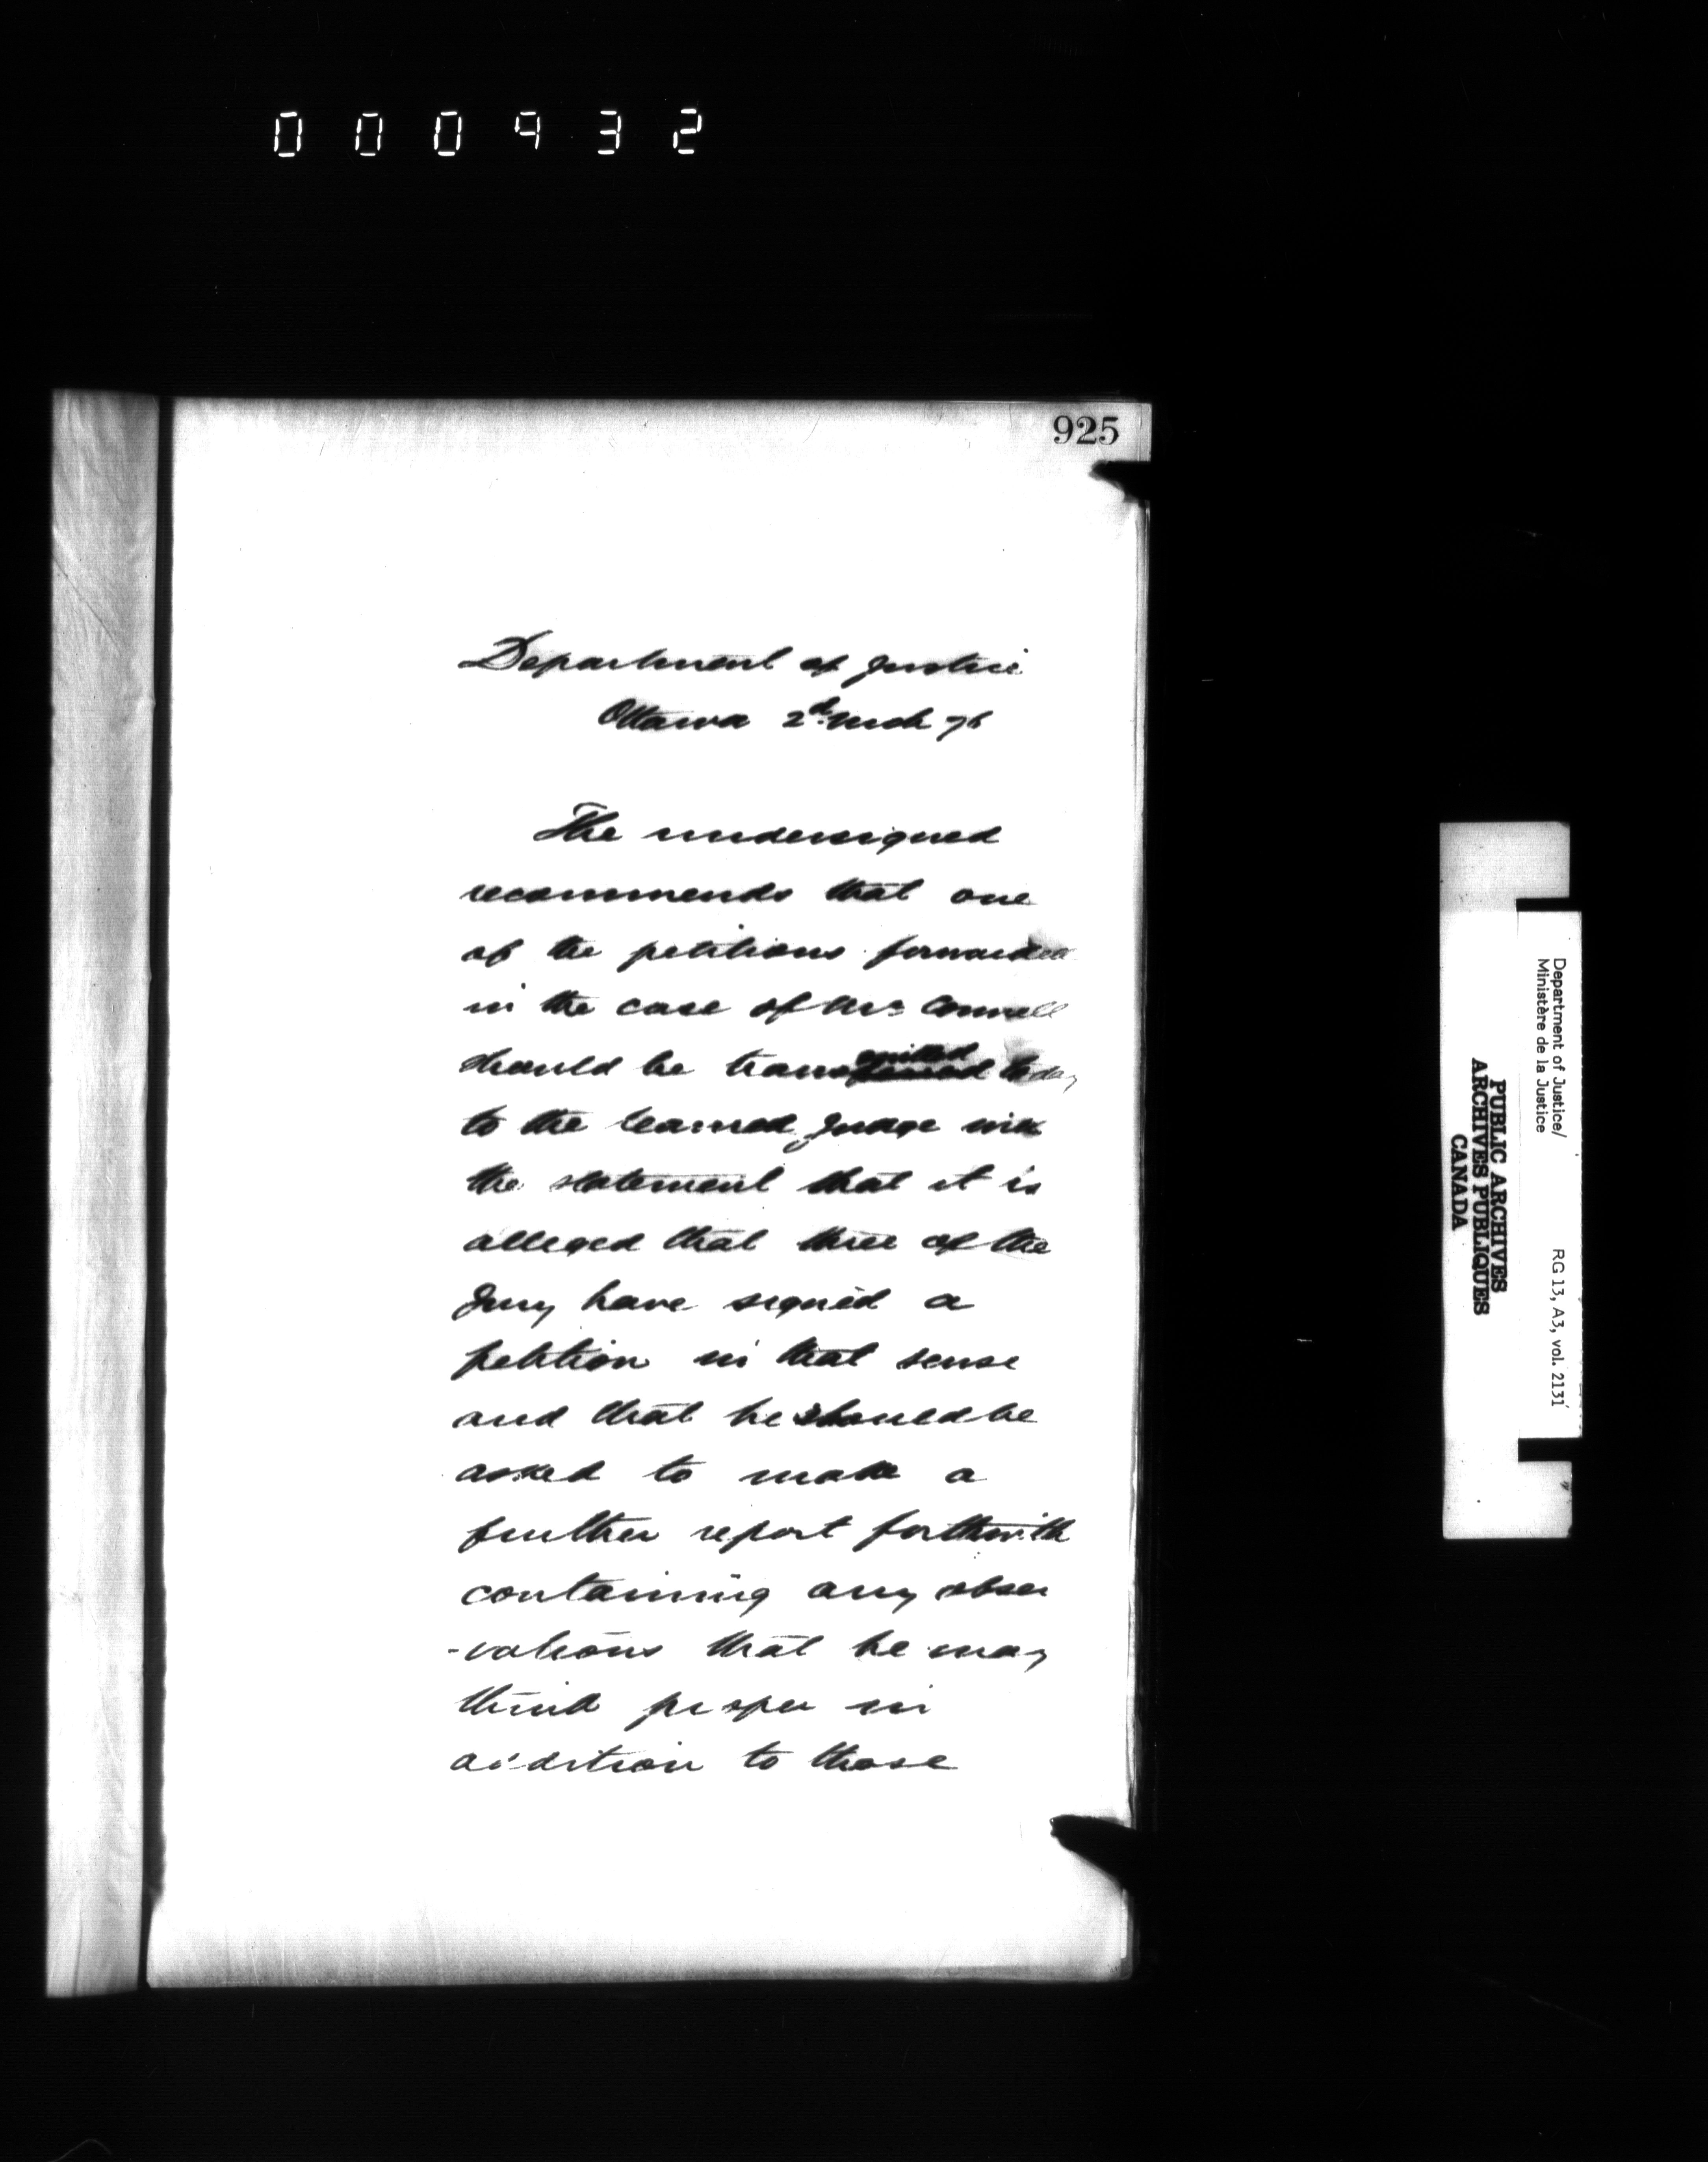 000932
925
Department of Justice
Ottawa 2d. Mch 76
The undersigned
recommends that one
of the petitions forwarded
in the case of McConnell
should be transmitted today
to the learned Judge with
the statement that it is
alleged that three of the
Jury have signed a
petition in that sense
and that he should be
asked to make a
further report forthwith
containing any obser
-vations that he may
think proper in
addition to those
Department of Justice/
Ministère de la Justice
RG 13, A3, vol. 2131
PUBLIC ARCHIVES
ARCHIVES PUBLIQUES
CANADA